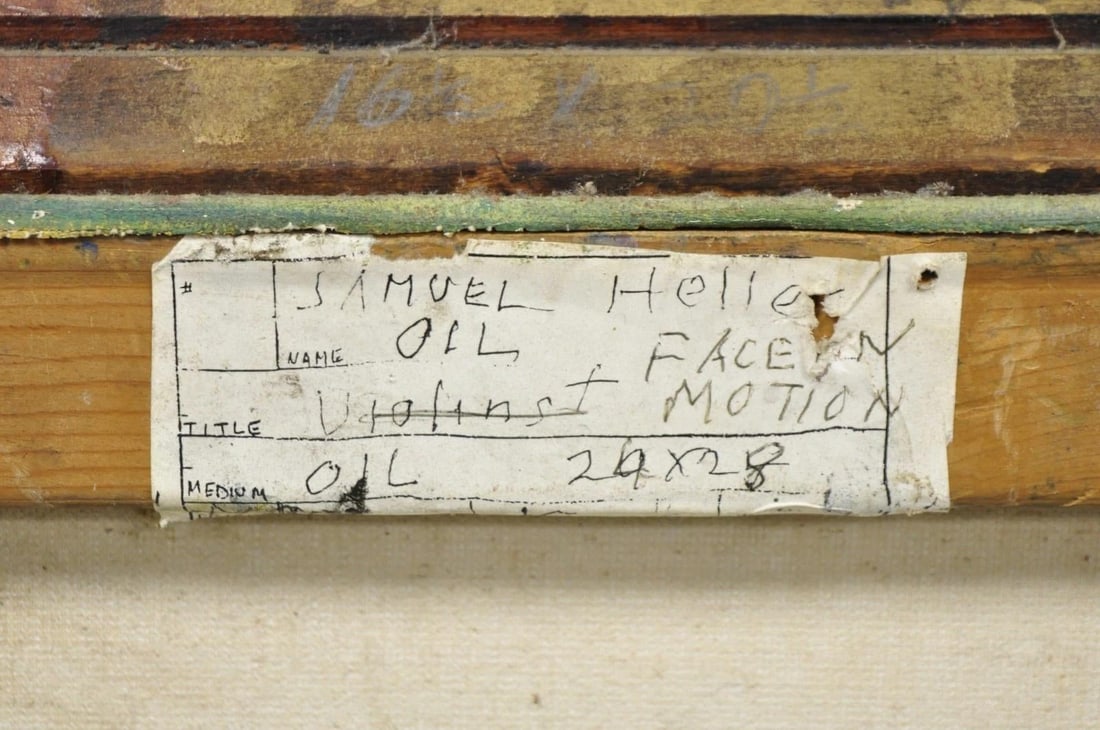 16½ X 22½
# SAMUEL Heller
NAME OIL FACE IN
TITLE Violinst MOTION
MEDIUM OIL 24X28